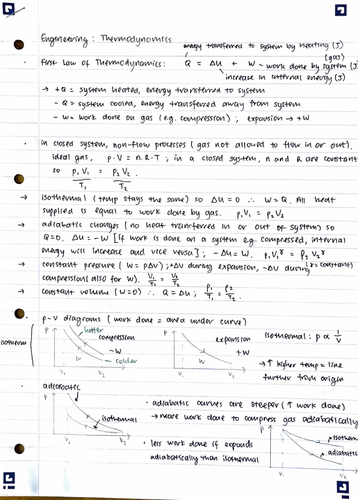 Engineering: Thermodynamics
energy transferred to system by heating (J)
(gas)
First Law of Thermodynamics: Q = ΔU + W - work done by system (J)
increase in internal energy (J)
→ +Q = system heated, energy transferred to system
- Q = system cooled, energy transferred away from system
- W = work done on gas (e.g. compression) ; expansion → +W
• in closed system, non-flow processes (gas not allowed to flow in or out).
ideal gas, p·V = n.R.T ; in a closed system, n and R are constant
so p₁V₁/T₁ = p₂V₂/T₂
→ isothermal (temp stays the same) so ΔU = 0 ∴ W = Q. All heat
supplied is equal to work done by gas. p₁V₁ = p₂V₂
→ adiabatic changes (no heat transferred in or out of system) so
Q=0. ΔU = -W [If work is done on a system e.g. compressed, internal
energy will increase and vice versa] ; -ΔU = W. p₁V₁^γ = p₂V₂^γ
(γ = constant)
→ constant pressure (W = pΔV) ; +ΔV during expansion, -ΔV during
compression (also for W). V₁/T₁ = V₂/T₂
→ constant volume (W=0) ∴ Q = ΔU ; p₁/T₁ = p₂/T₂
p-V diagrams (work done = area under curve)
isotherm
p
hotter
compression
-W
colder
W
V₁
V₂
p
expansion
+W
W
V₁
V₂
isothermal : p ∝ 1/V
→ ↑ higher temp = line
further from origin
adiabatic
p
isothermal
V₁
V₂
• adiabatic curves are steeper (↑ work done)
→ more work done to compress gas adiabatically
• less work done if expands
adiabatically than isothermal
p
isotherm
adiabatic
V₁
V₂